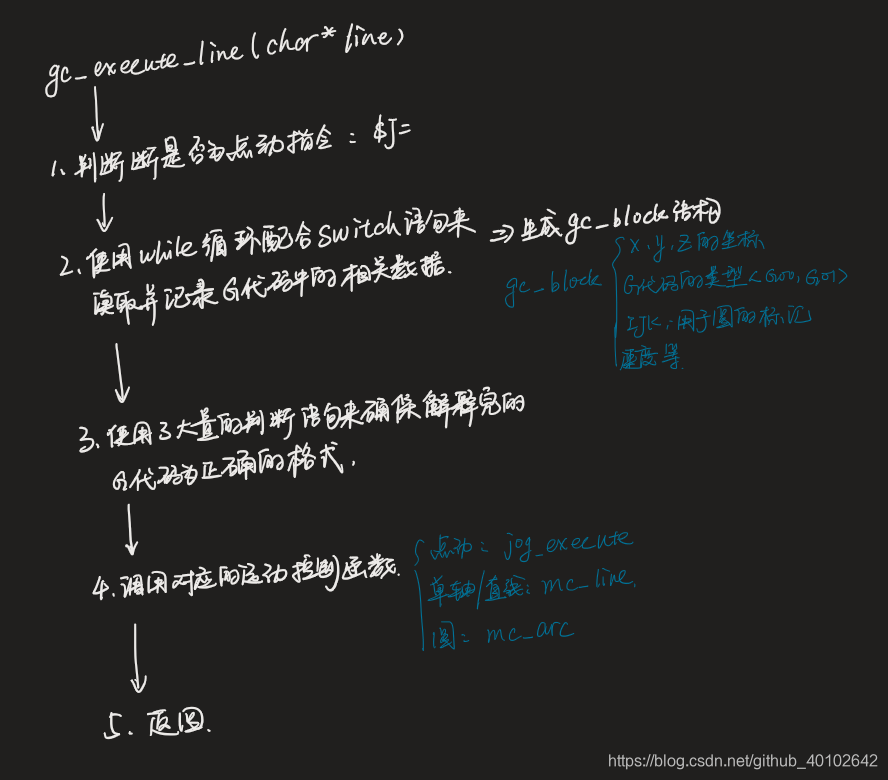 gc_execute_line(char* line)
1、判断断是否为点动指令：$J=
2、使用while循环配合switch语句来
读取并记录G代码中的相关数据.
=> 生成gc_block结构
gc_block
x、y、z的坐标
G代码的类型<G00, G01>
IJK：用于圆的标记
速度等.
3、使用了大量的判断语句来确保解释完的
G代码为正确的格式.
4、调用对应的运动控制函数.
点动：jog_execute
单轴/直线：mc_line.
圆：mc_arc
5、返回.
https://blog.csdn.net/github_40102642